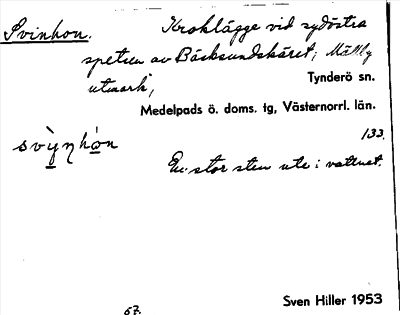 Svinhon. Kroklägge vid sydöstra
spetsen av Bäcksundskäret; Mällby
utmark,
Tynderö sn.
Medelpads ö. doms. tg, Västernorrl. län.
133.
svỳŋhòn
En stor sten ute i vattnet.
Sven Hiller 1953
57.